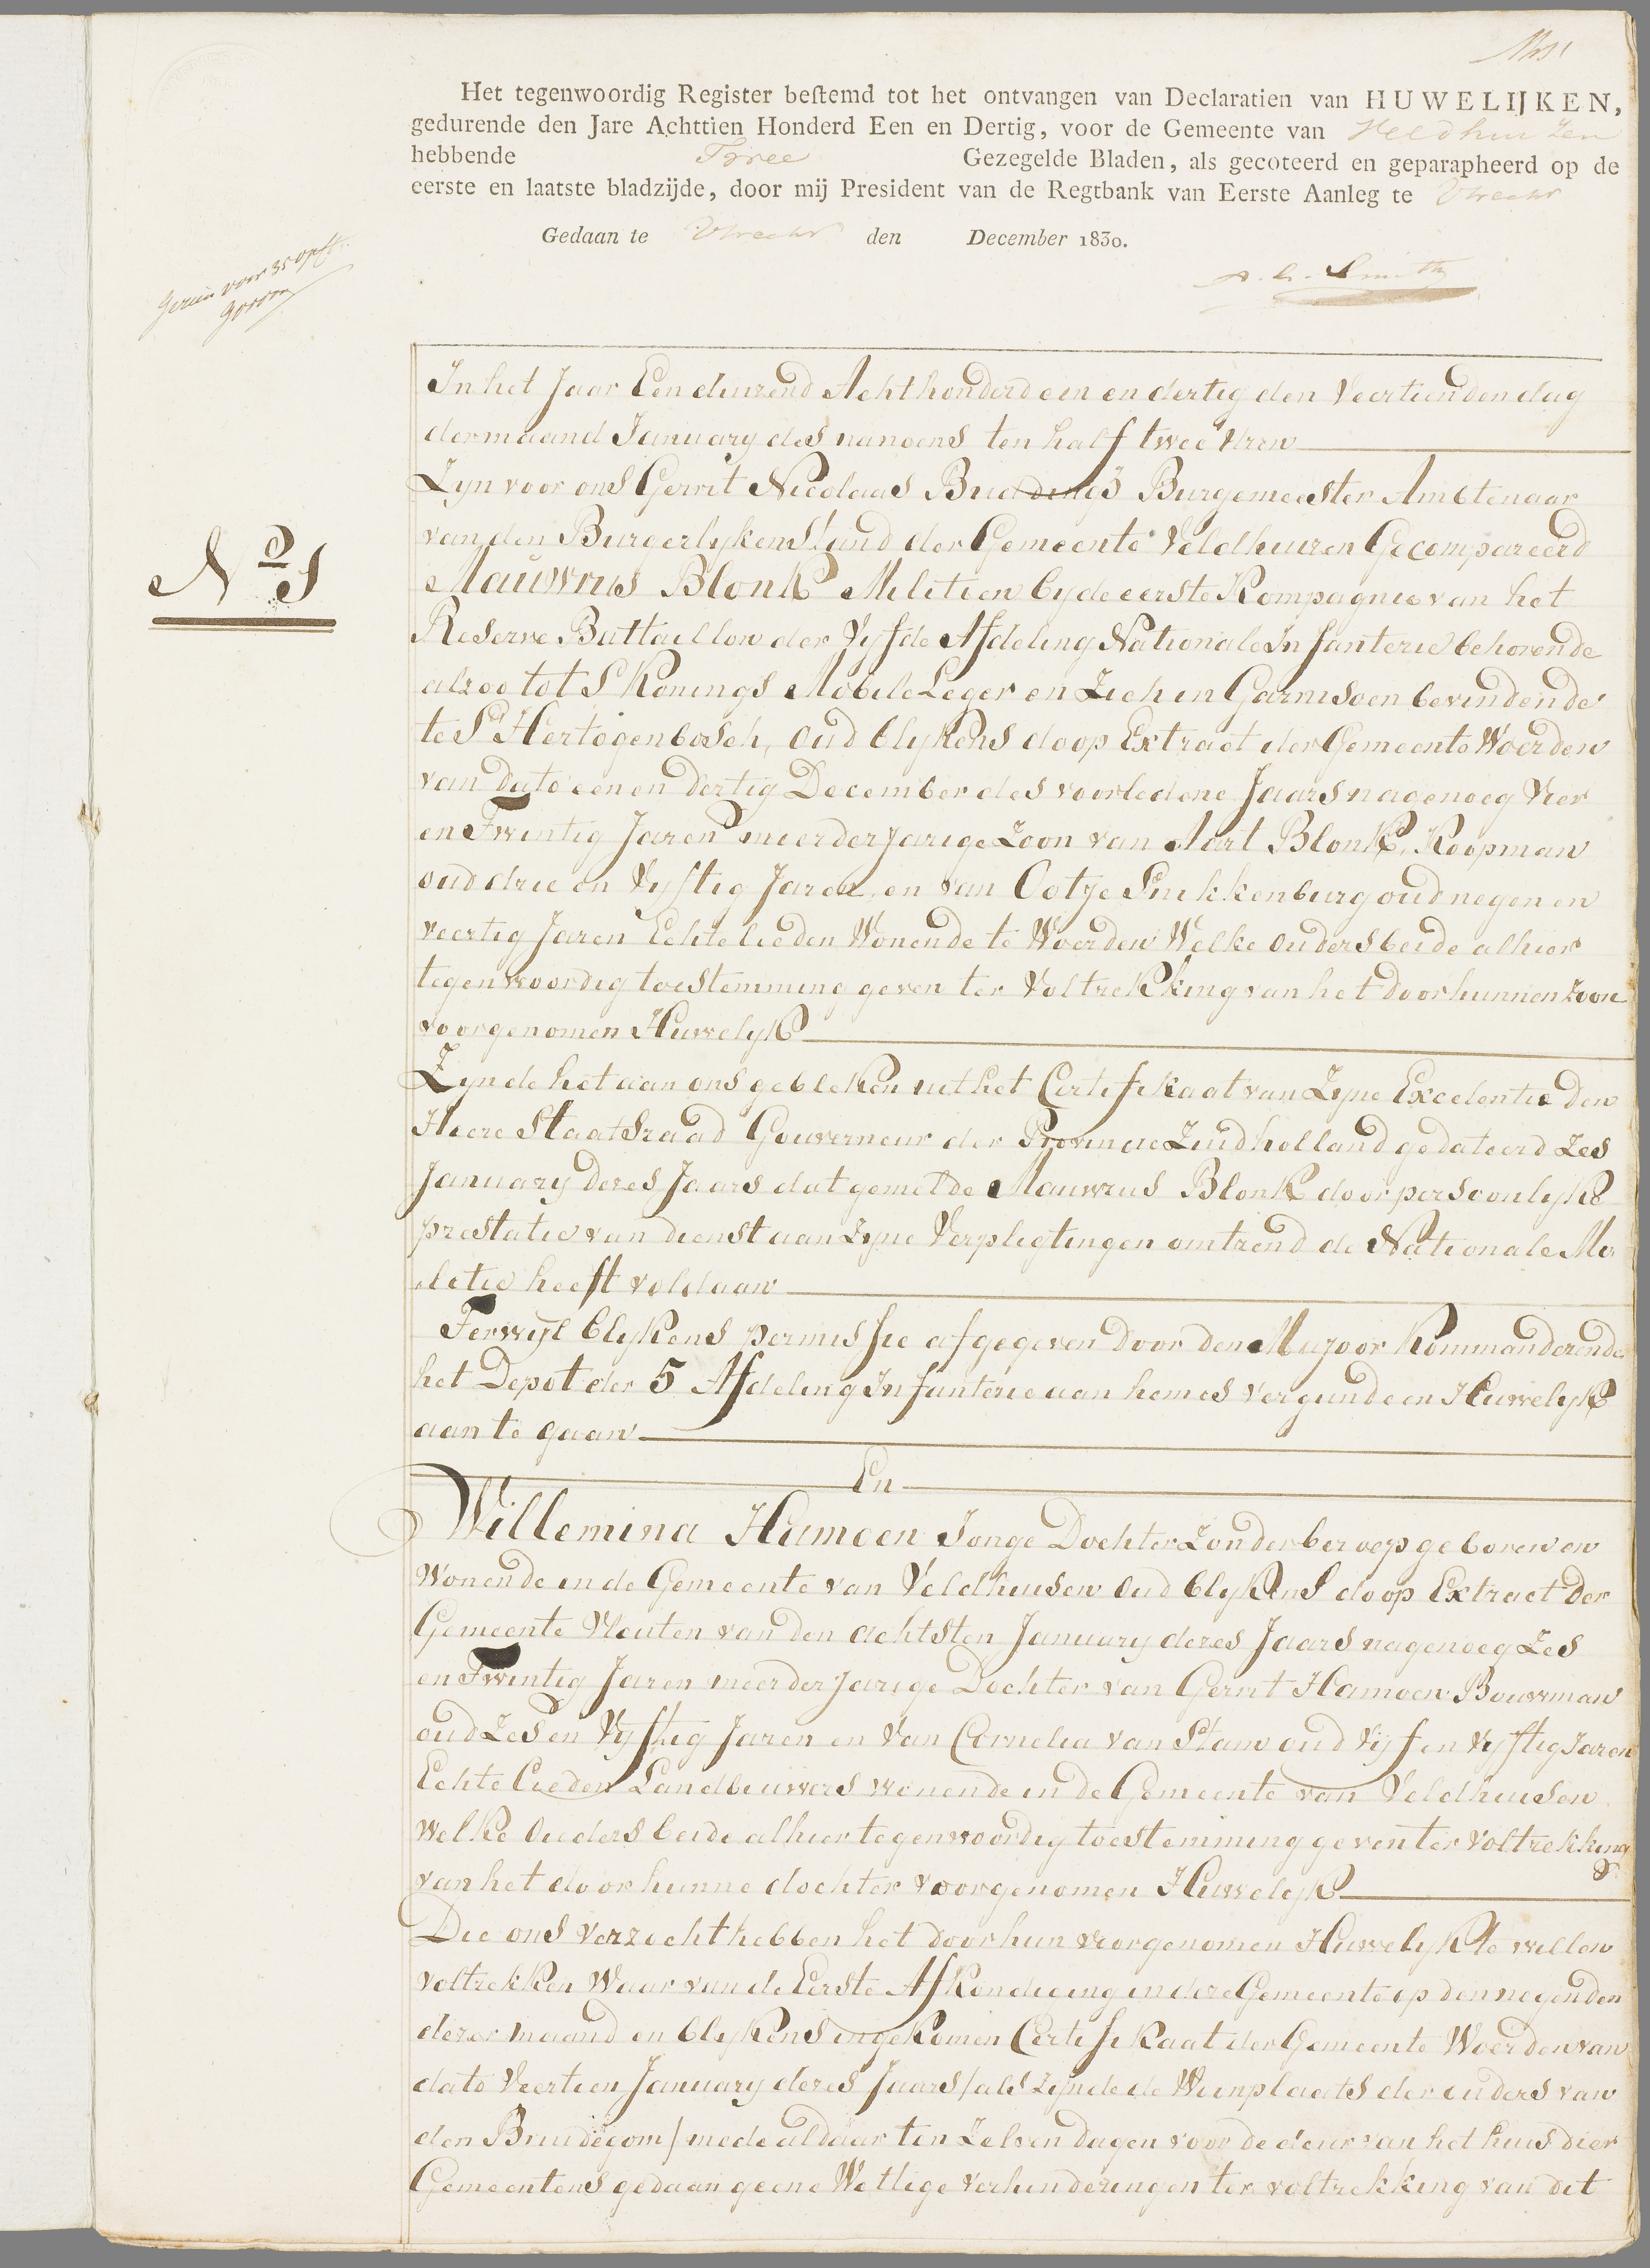 Het tegenwoordig Register bestemd tot het ontvangen van Declaratien van HUWELIJKEN,
gedurende den Jare Achttien Honderd Een en Dertig, voor de Gemeente van Veldhuizen
hebbende Twee Gezegelde Bladen, als gecoteerd en geparapheerd op de
eerste en laatste bladzijde, door mij President van de Regtbank van Eerste Aanleg te Utrecht
Gedaan te Utrecht den December 1830.
Gezien voor 35 opst.
In het Jaar Een duizend Acht honderd een en dertig den Veertienden dag
der maand January des namoens ten half twee uren
Zyn voor ons Gerrit Nicolaas Buddingh Burgemeester Ambtenaar
van den Burgerlyken Stand der Gemeente Veldhuizen Gecompareerd
No 1
Mauwrus Blonk Militien by de eerste Kompagnie van het
Reserve Battaillon der Vyfde Afdeling Nationale Infanterie behorende
alzoo tot S Konings Mobile Leger en Zich in Garnisoen bevindende
te S Hertogenbosch, oud blykens doop Extract der Gemeente Woerden
van dato een en dertig December des voorledene Jaars nagenoeg Vier
en Twintig Jaren meerderjarige Zoon van Aart Blonk, Koopman
oud drie en Vyftig Jaren, en van Ootje Snikkenburg oud negen en
veertig Jaren Echtelieden Wonende te Woerden Welke ouders beide alhier
tegenwoordig toestemming geven ter Voltrekking van het door hunnen Zoon
voorgenomen Huwelyk
Zynde het aan ons gebleken uit het Certifikaat van Zyne Excelentie den
Heere Staatsraad Gouverneur der Provincie Zuidholland gedateerd Zes
January dezes Jaars dat gemelde Mauwrus Blonk door persoonlyke
prestatie van dienst aan Zyne Verpligtingen omtrend de Nationale Mi
litie heeft voldaan
Terwyl blykens permissie afgegeven door den Majoor Kommanderende
het Depot der 5 Afdeling Infanterie aan hem es vergund een Huwelyk
aan te gaan
En
Willemina Hamoen Jonge Dochter Zonder beroep geboren en
Wonende in de Gemeente van Veldhuisen oud blykens doop Extract der
Gemeente Vleuten van den achtsten January dezes Jaars nagenoeg Zes
en Twintig Jaren meerderjarige Dochter van Gerrit Hamoen Bouwman
oud Zes en Vyftig Jaren en Van Cornelia van Stam oud Vijf en Vyftig Jaren
Echte Lieden Landbouwers wonende in de Gemeente van Veldhuisen
welke Ouders beide alhier tegenwoordig toestemming geven ter voltrekking
van het door hunne dochter voorgenomen Huwelyk
Die ons verzocht hebben het door hun voorgenomen Huwelyk te willen
voltrekken Waar van de Eerste Afkondiging in deze Gemeente op den negenden
dezer maand en blykens ingekomen Certifikaat der Gemeente Woerden van
dato Veertien January dezes Jaars / als zynde de Woonplaats der ouders van
den Bruidegom / mede aldaar ten Zelven dagen voor de deur van het huis dier
Gemeentens gedaan geene Wettige verhinderingen ter voltrekking van dit